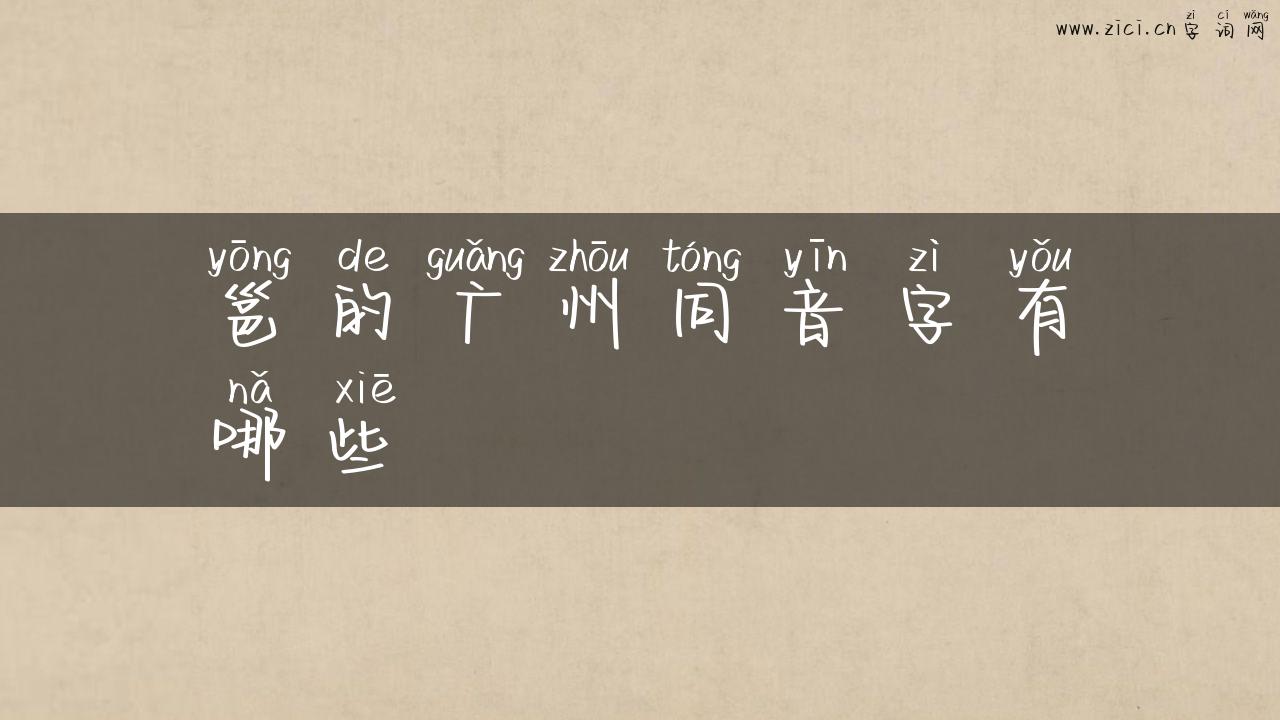 zì cí wǎng
www.zici.cn 字词网
yōng de guǎng zhōu tóng yīn zì yǒu
邕的广州同音字有
nǎ xiē
哪些